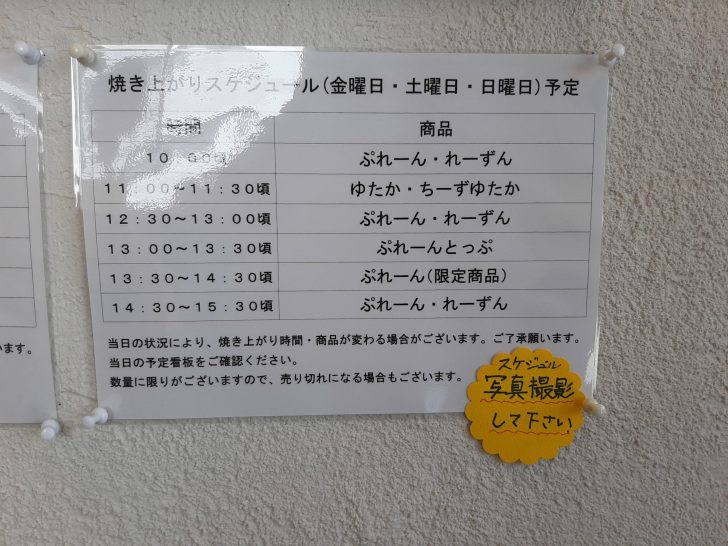 焼き上がりスケジュール(金曜日・土曜日・日曜日)予定
時間 商品
10:00頃 ぷれーん・れーずん
11:00～11:30頃 ゆたか・ちーずゆたか
12:30～13:00頃 ぷれーん・れーずん
13:00～13:30頃 ぷれーんとっぷ
13:30～14:30頃 ぷれーん(限定商品)
14:30～15:30頃 ぷれーん・れーずん
当日の状況により、焼き上がり時間・商品が変わる場合がございます。ご了承願います。
当日の予定看板をご確認ください。
数量に限りがございますので、売り切れになる場合もございます。
スケジュル
写真撮影
して下さい
います。